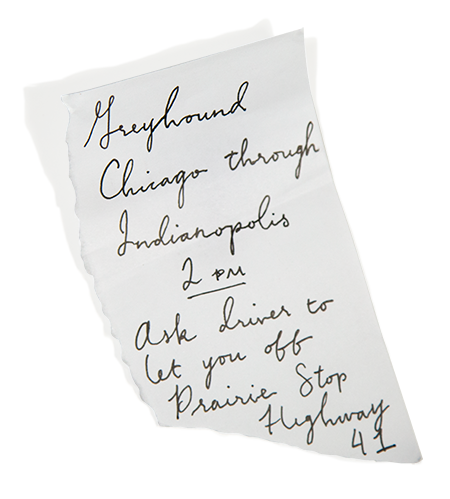 Greyhound
Chicago through
Indianapolis
2 PM
Ask driver to
let you off
Prairie Stop
Highway
41